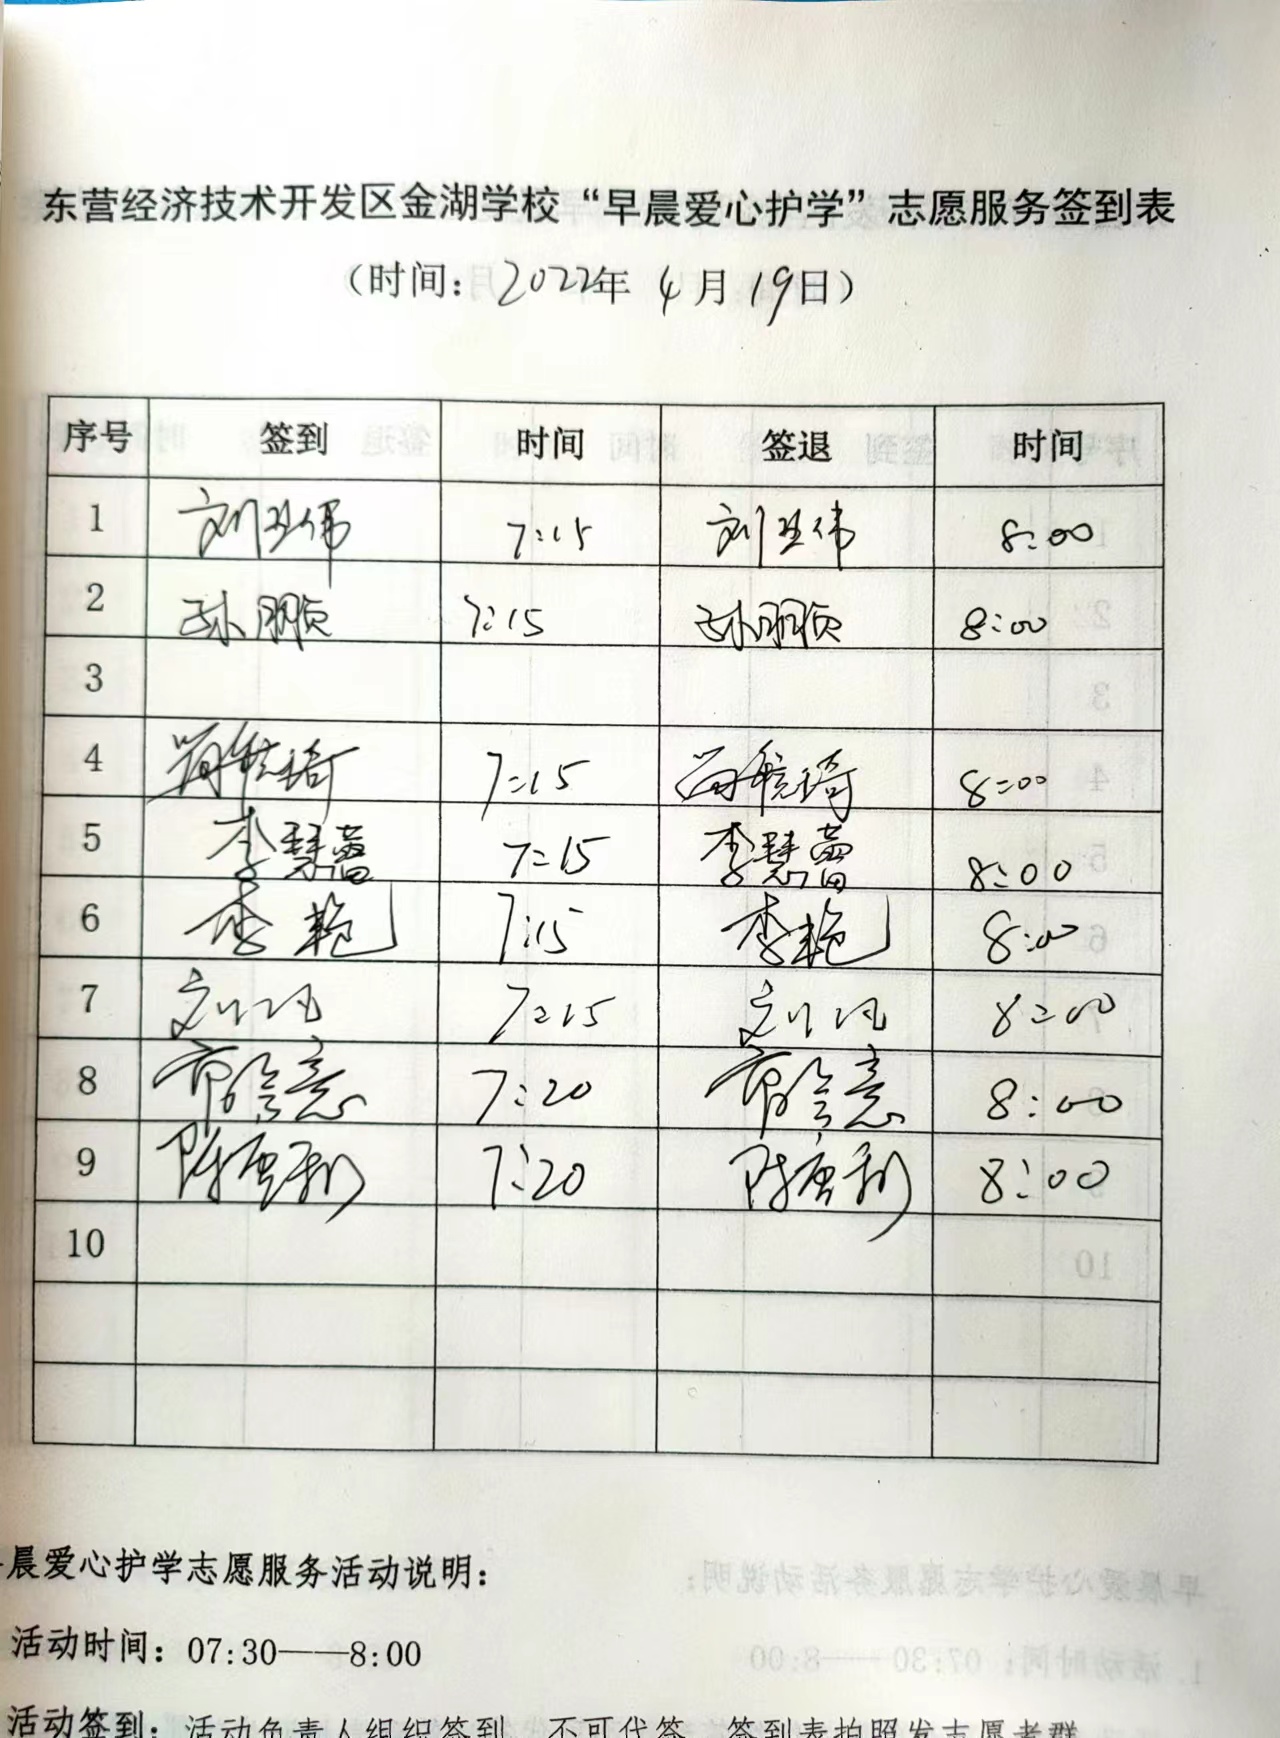 东营经济技术开发区金湖学校“早晨爱心护学”志愿服务签到表
（时间：2022年 4月 19日）
序号 签到 时间 签退 时间
1 刘卫伟 7:15 刘卫伟 8:00
2 孙鹏 7:15 孙鹏 8:00
3
4 7:15 8:00
5 李慧蕾 7:15 李慧蕾 8:00
6 李艳 7:15 李艳 8:00
7 刘 7:15 刘 8:00
8 7:20 8:00
9 陈 7:20 陈 8:00
10
晨爱心护学志愿服务活动说明：
活动时间：07:30——8:00
活动签到：活动负责人组织签到，不可代签，签到表拍照发志愿者群